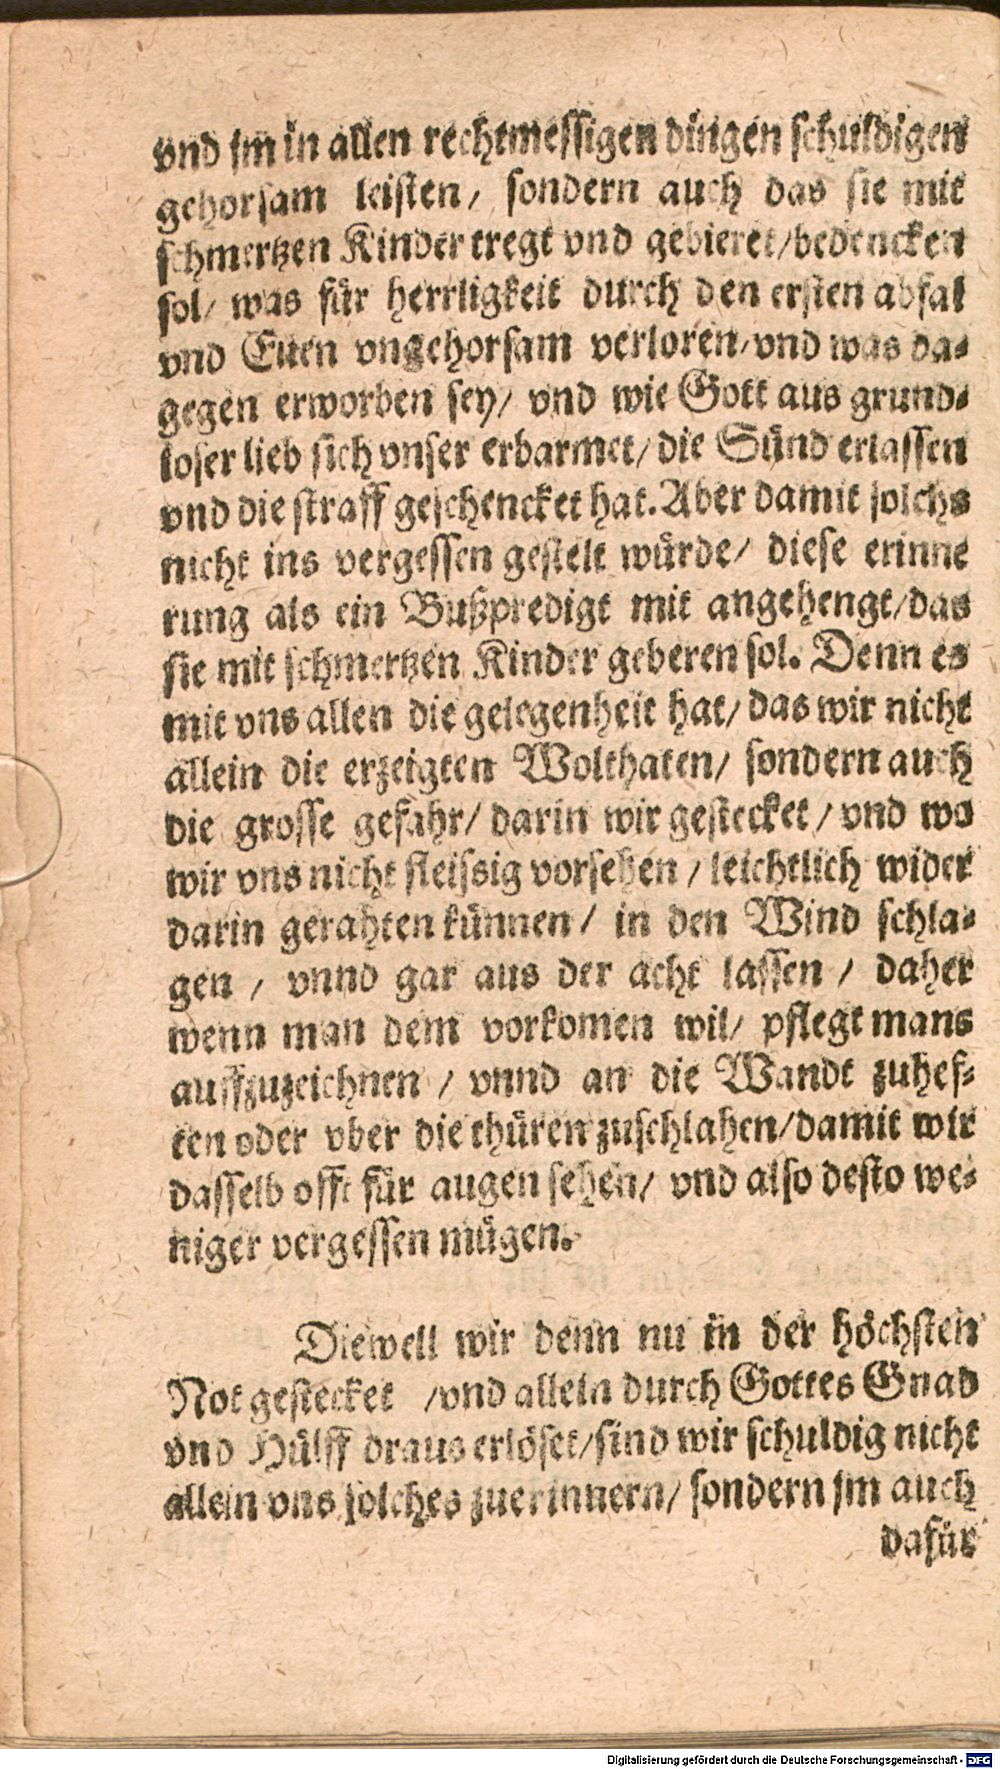 vnd jm in allen rechtmessigen dingen schuldigen
gehorsam leisten/ sondern auch das sie mit
schmertzen Kinder tregt vnd gebieret/bedencken
sol/ was für herrligkeit durch den ersten abfal
vnd Euen vngehorsam verloren/vnd was da-
gegen erworben sey/ vnd wie Gott aus grund-
loser lieb sich vnser erbarmet/ die Sünd erlassen
vnd die straff geschencket hat. Aber damit solchs
nicht ins vergessen gestelt würde/ diese erinne
rung als ein Bußpredigt mit angehengt/das
sie mit schmertzen Kinder geberen sol. Denn es
mit vns allen die gelegenheit hat/ das wir nicht
allein die erzeigten Wolthaten/ sondern auch
die grosse gefahr/ darin wir gestecket/ vnd wo
wir vns nicht fleissig vorsehen/ leichtlich wider
darin gerahten künnen/ in den Wind schla-
gen/ vnnd gar aus der acht lassen/ daher
wenn man dem vorkomen wil/ pflegt mans
auffzuzeichnen/ vnnd an die Wandt zuhef-
ten oder vber die thüren zuschlahen/damit wir
dasselb offt für augen sehen/ vnd also desto we-
niger vergessen mügen.
Diewell wir denn nu in der höchsten
Not gestecket /vnd allein durch Gottes Gnad
vnd Hülff draus erlöset/sind wir schuldig nicht
allein vns solches zuerinnern/ sondern jm auch
dafür
Digitalisierung gefördert durch die Deutsche Forschungsgemeinschaft - DFG